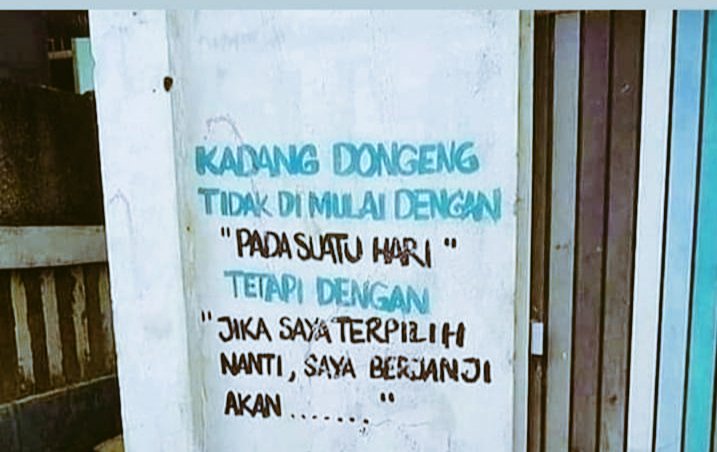 KADANG DONGENG
TIDAK DI MULAI DENGAN
"PADA SUATU HARI "
TETAPI DENGAN
"JIKA SAYA TERPILIH
NANTI, SAYA BERJANJI
AKAN ....... "